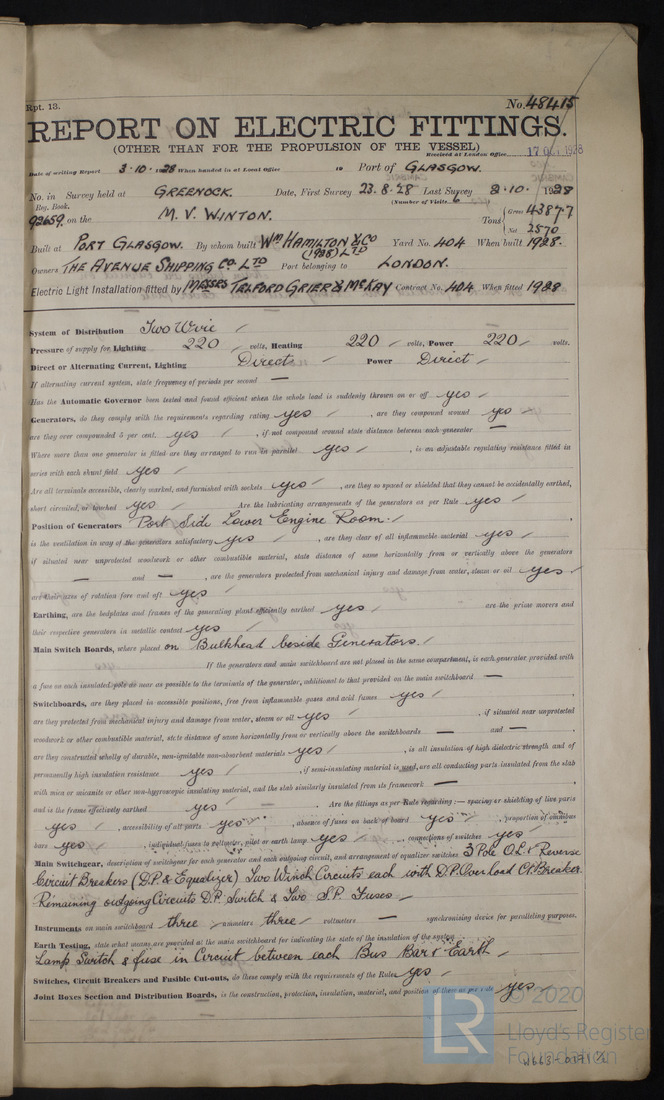 Rpt. 13.
No. 48415
REPORT ON ELECTRIC FITTINGS.
(OTHER THAN FOR THE PROPULSION OF THE VESSEL)
Received at London Office 17 OCT 1928
Date of writing Report 3·10·1928 When handed in at Local Office 19 Port of GLASGOW.
No. in Survey held at GREENOCK. Date, First Survey 23.8.28 Last Survey 2·10·1928
Reg. Book. (Number of Visits 6
92659 on the M.V. WINTON. Tons { Gross 4387·7
Net 2570
Built at PORT GLASGOW. By whom built Wm HAMILTON & CO (1928) LTD Yard No. 404 When built 1928.
Owners THE AVENUE SHIPPING CO. LTD Port belonging to LONDON.
Electric Light Installation fitted by MESSRS TELFORD GRIER & McKAY Contract No. 404 When fitted 1928
System of Distribution Two Wire /
Pressure of supply for Lighting 220 / volts, Heating 220 / volts, Power 220 / volts.
Direct or Alternating Current, Lighting Direct / Power Direct /
If alternating current system, state frequency of periods per second —
Has the Automatic Governor been tested and found efficient when the whole load is suddenly thrown on or off yes /
Generators, do they comply with the requirements regarding rating yes / , are they compound wound yes /
are they over compounded 5 per cent. yes / , if not compound wound state distance between each generator —
Where more than one generator is fitted are they arranged to run in parallel yes / , is an adjustable regulating resistance fitted in
series with each shunt field yes /
Are all terminals accessible, clearly marked, and furnished with sockets yes / , are they so spaced or shielded that they cannot be accidentally earthed,
short circuited, or touched yes / Are the lubricating arrangements of the generators as per Rule yes /
Position of Generators Port Side Lower Engine Room. /
is the ventilation in way of the generators satisfactory yes / , are they clear of all inflammable material yes /
if situated near unprotected woodwork or other combustible material, state distance of same horizontally from or vertically above the generators
— and — , are the generators protected from mechanical injury and damage from water, steam or oil yes /
are their axes of rotation fore and aft yes /
Earthing, are the bedplates and frames of the generating plant efficiently earthed yes / are the prime movers and
their respective generators in metallic contact yes /
Main Switch Boards, where placed on Bulkhead beside Generators. /
If the generators and main switchboard are not placed in the same compartment, is each generator provided with
a fuse on each insulated pole as near as possible to the terminals of the generator, additional to that provided on the main switchboard —
Switchboards, are they placed in accessible positions, free from inflammable gases and acid fumes yes /
are they protected from mechanical injury and damage from water, steam or oil yes / , if situated near unprotected
woodwork or other combustible material, state distance of same horizontally from or vertically above the switchboards — and —
are they constructed wholly of durable, non-ignitable non-absorbent materials yes / , is all insulation of high dielectric strength and of
permanently high insulation resistance yes / , if semi-insulating material is used, are all conducting parts insulated from the slab
with mica or micanite or other non-hygroscopic insulating material, and the slab similarly insulated from its framework —
and is the frame effectively earthed yes / Are the fittings as per Rule regarding:— spacing or shielding of live parts
yes / , accessibility of all parts yes / , absence of fuses on back of board yes / , proportion of omnibus
bars yes / , individual fuses to voltmeter, pilot or earth lamp yes / , connections of switches yes /
Main Switchgear, description of switchgear for each generator and each outgoing circuit, and arrangement of equalizer switches 3 Pole O.L. & Reverse
Circuit Breakers (D.P. & Equalizer) Two Winch Circuits each with D.P. Over load Ct. Breaker.
Remaining outgoing Circuits D.P. Switch & Two S.P. Fuses /
Instruments on main switchboard three / ammeters three / voltmeters — synchronising device for paralleling purposes.
Earth Testing, state what means are provided at the main switchboard for indicating the state of the insulation of the system
Lamp Switch & fuse in Circuit between each Bus Bar & Earth /
Switches, Circuit Breakers and Fusible Cut-outs, do these comply with the requirements of the Rules yes /
Joint Boxes Section and Distribution Boards, is the construction, protection, insulation, material, and position of these as per rule yes /
© 2020
Lloyd's Register
Foundation
W663-0391 ½